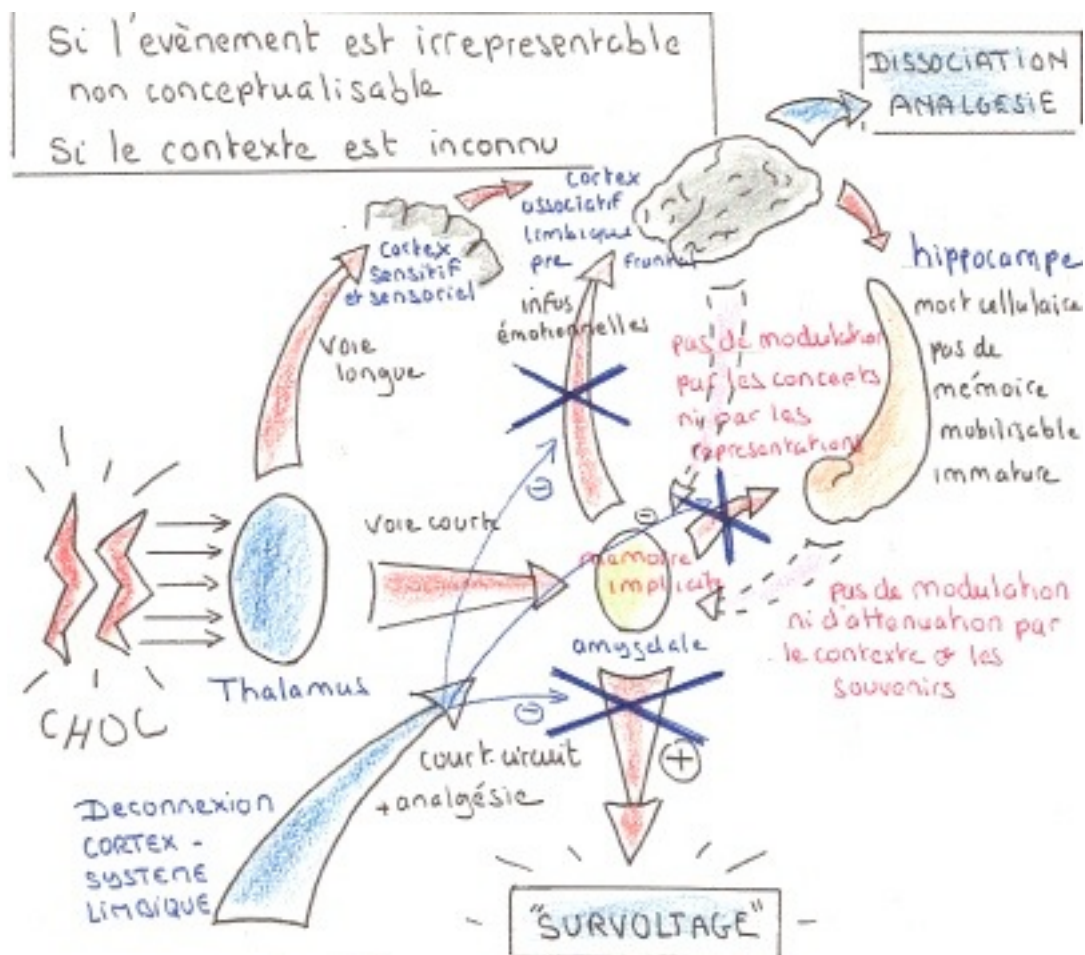 Si l'evènement est irrepresentable
non conceptualisable
Si le contexte est inconnu
DISSOCIATION
ANALGESIE
cortex
sensitif
et sensoriel
cortex
associatif
limbique
pre frontal
hippocampe
mort cellulaire
pas de
mémoire
mobilisable
immature
voie
longue
infos
émotionnelles
pas de modulation
par les concepts
ni par les
representations
CHOC
Thalamus
voie courte
mémoire
implicite
amygdale
pas de modulation
ni d'attenuation par
le contexte & les
souvenirs
Deconnexion
CORTEX -
SYSTEME
LIMBIQUE
court-circuit
+ analgésie
"SURVOLTAGE"